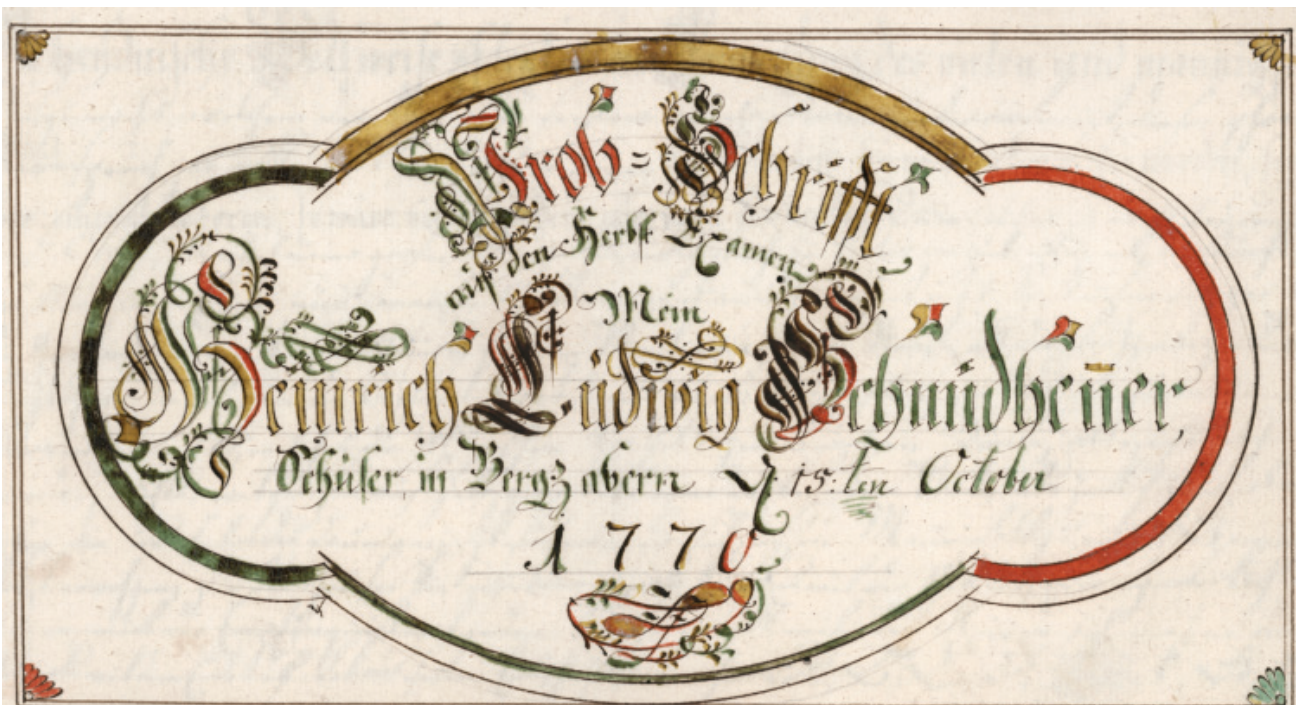 Prob = Schrifft
auf den Herbst Examen
Mein
Heinrich Ludwig Schmidheüer
Schüler in Bergzabern d 15:ten October
1770